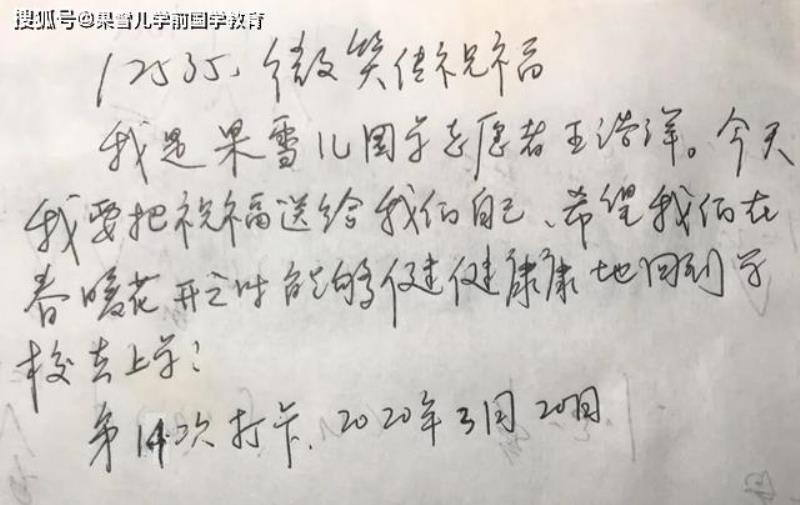 搜狐号@果雪儿学前国学教育
12535、微笑传祝福
我是果雪儿国学志愿者王浩洋。今天
我要把祝福送给我们自己、希望我们在
春暖花开之时能够健健康康地回到学
校去上学!
第14次打卡、2020年3月20日